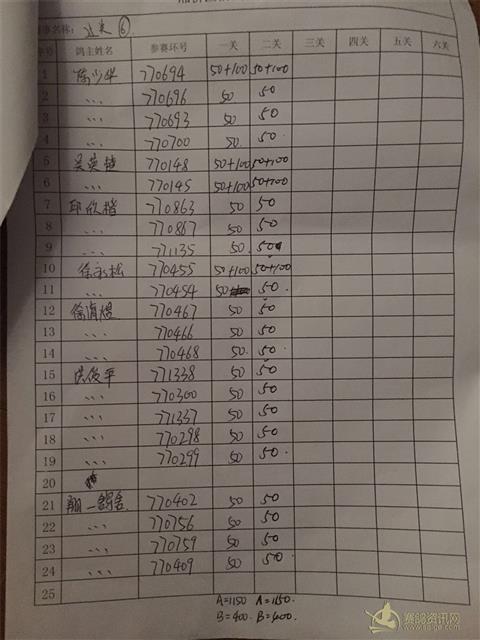 名称: 过关 ⑥
序号 鸽主姓名 参赛环号 一关 二关 三关 四关 五关 六关
1 陈少华 770694 50+100 50+100
2 、、、 770696 50 50
3 、、、 770693 50 50
4 、、、 770700 50 50
5 吴英楚 770148 50+100 50+100
6 、、、 770145 50+100 50+100
7 邱欣楷 770863 50 50
8 、、、 770867 50 50
9 、、、 771135 50 50
10 徐永松 770455 50+100 50+100
11 、、、 770454 50 50
12 徐演煜 770467 50 50
13 、、、 770466 50 50
14 、、、 770468 50 50
15 洪俊平 771338 50 50
16 、、、 770300 50 50
17 、、、 771337 50 50
18 、、、 770298 50 50
19 、、、 770299 50 50
20
21 翔一鸽舍 770402 50 50
22 、、、 770756 50 50
23 、、、 770759 50 50
24 、、、 770409 50 50
25
A=1150 A=1150.
B=400. B=400.
赛鸽资讯网